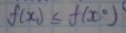 f(x) ≤ f(x⁰)